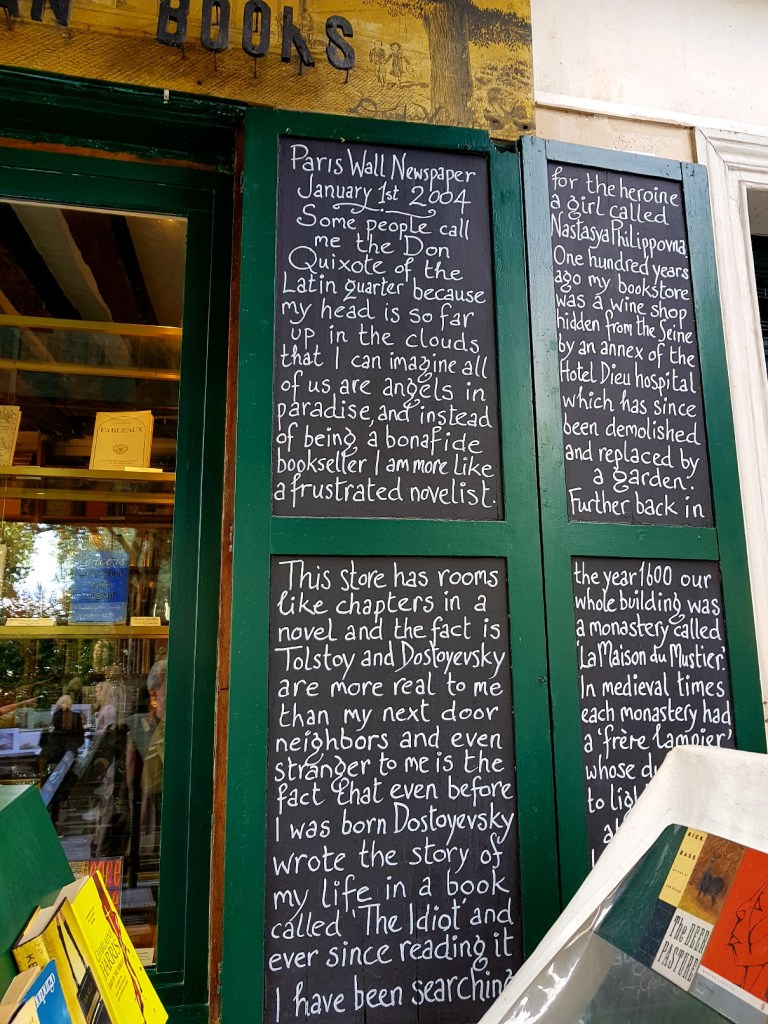 AN BOOKS
Paris Wall Newspaper
January 1st 2004
Some people call
me the Don
Quixote of the
Latin quarter because
my head is so far
up in the clouds
that I can imagine all
of us are angels in
paradise, and instead
of being a bonafide
bookseller I am more like
a frustrated novelist.
This store has rooms
like chapters in a
novel and the fact is
Tolstoy and Dostoyevsky
are more real to me
than my next door
neighbors and even
stranger to me is the
fact that even before
I was born Dostoyevsky
wrote the story of
my life in a book
called 'The Idiot' and
ever since reading it
I have been searching
for the heroine
a girl called
Nastasya Philippovna.
One hundred years
ago my bookstore
was a wine shop
hidden from the Seine
by an annex of the
Hotel Dieu hospital
which has since
been demolished
and replaced by
a garden.
Further back in
the year 1600 our
whole building was
a monastery called
'La Maison du Mustier'
In medieval times
each monastery had
a 'frère lampier'
whose
to
TABLEAUX
RICK
BASS
The DEER
PASTURE